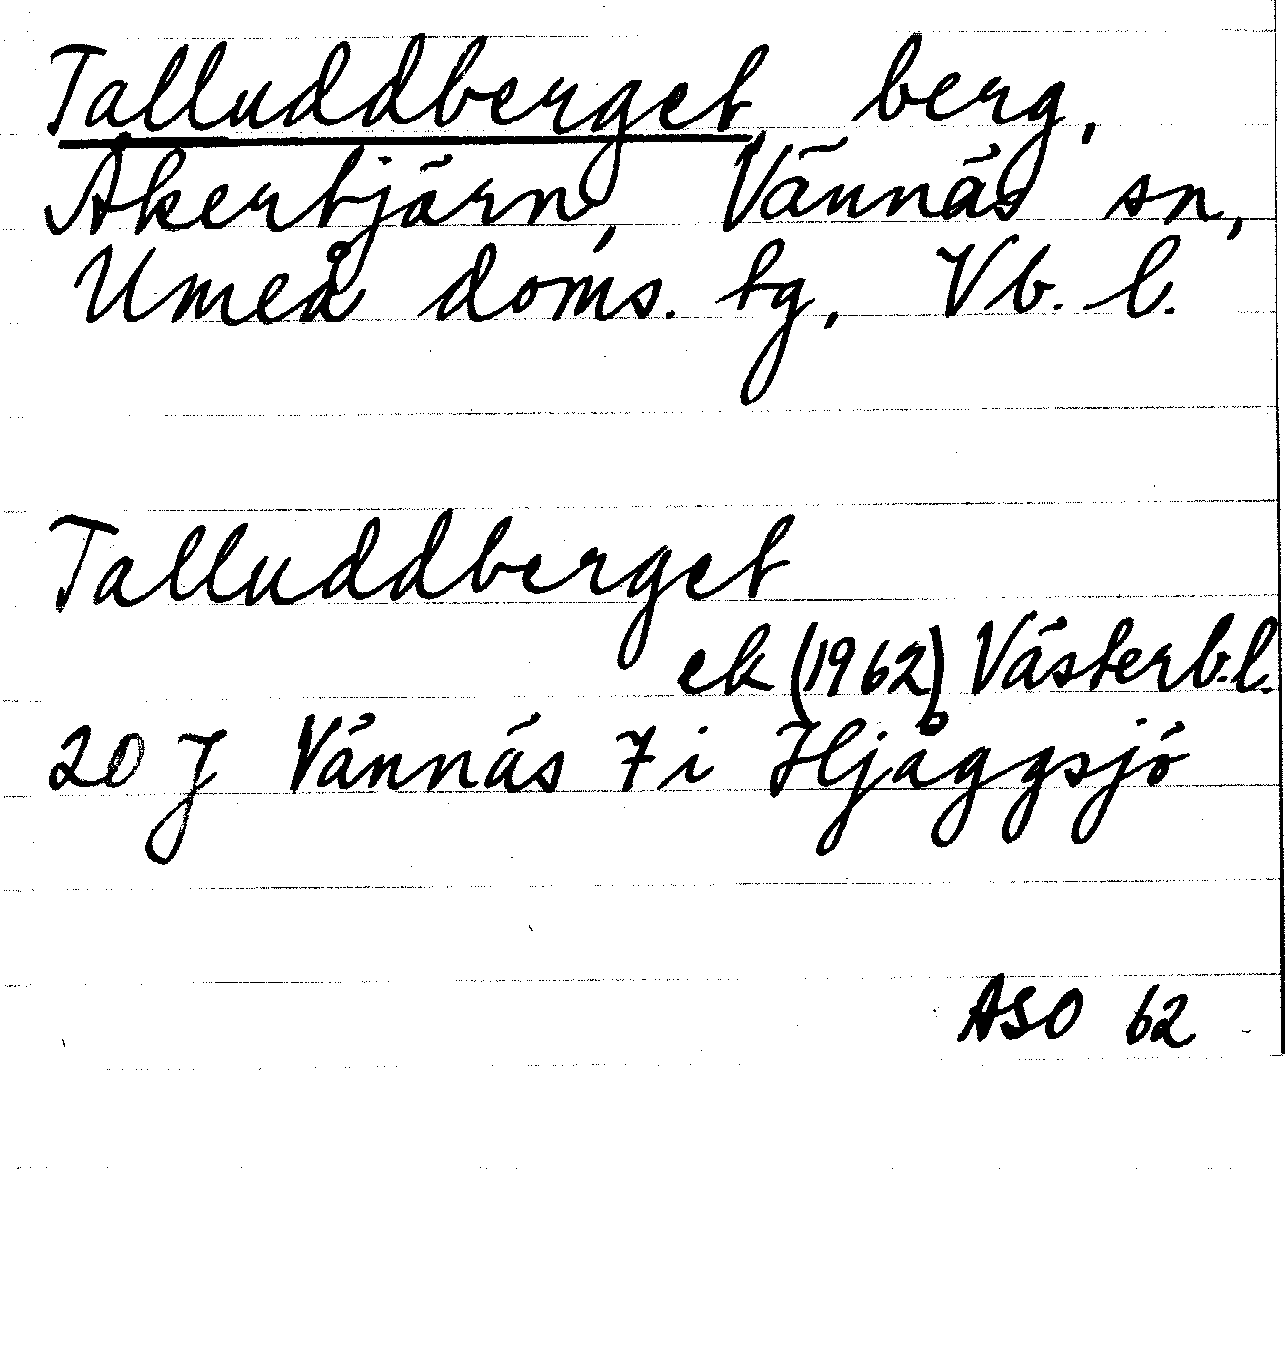 Talluddberget, berg,
Åkertjärn, Vännäs sn,
Umeå doms. tg, Vb. l.
Talluddberget
ek (1962) Västerb.l.
20 J Vännäs 7i Hjåggsjö
ASO 62